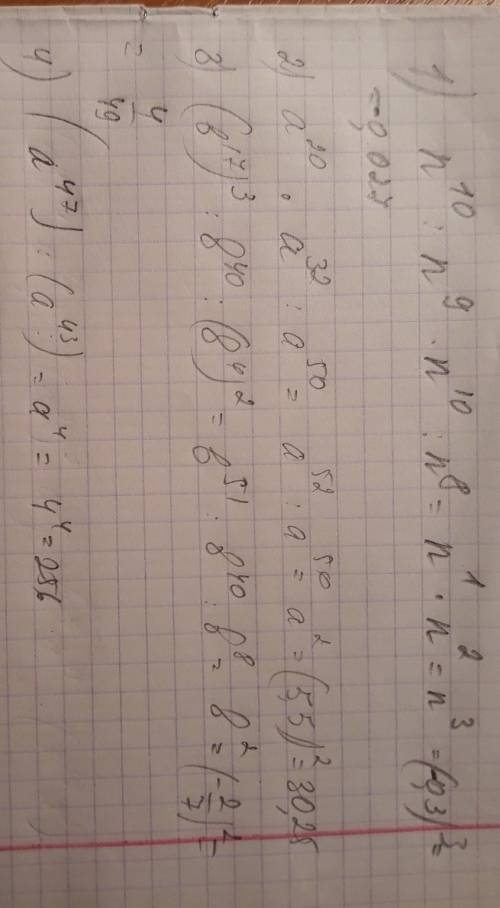 1) n¹⁰ : n⁹ · n¹⁰ : n⁸ = n¹ · n² = n³ = (-0,3)³ =
= -0,027
2) a²⁰ · a³² : a⁵⁰ = a⁵² : a⁵⁰ = a² = (5,5)² = 30,25
3) (b¹⁷)³ : b⁴⁰ : (b⁴)² = b⁵¹ : b⁴⁰ : b⁸ = b² = (-2/7)² =
= 4/49
4) (a⁴⁷) : (a⁴³) = a⁴ = 4⁴ = 256